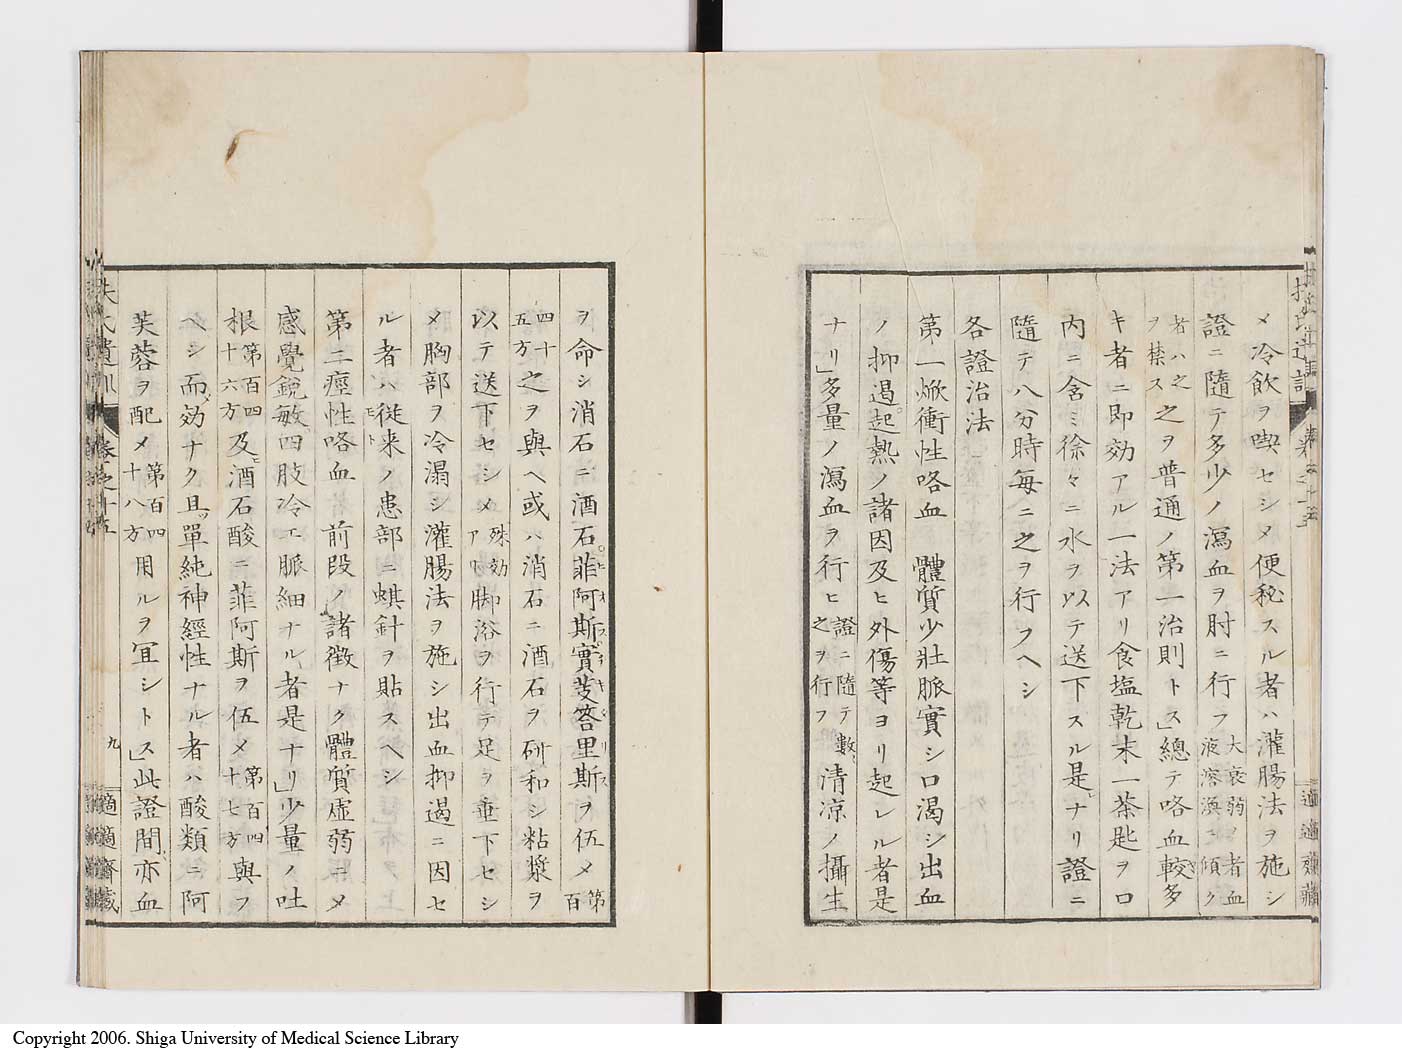 メ冷飲ヲ喫セシメ便秘スル者ハ灌腸法ヲ施シ
證ニ隨テ多少ノ瀉血ヲ肘ニ行フ大衰弱ノ者血液溶渙ニ傾ク
者ハ之ヲ禁ス之ヲ普通ノ第一治則トス」總テ咯血較多
キ者ニ即効アル一法アリ食塩乾末一茶匙ヲ口
内ニ含ミ徐々ニ水ヲ以テ送下スル是ナリ證ニ
隨テ八分時每ニ之ヲ行フヘシ
各證治法
第一焮衝性咯血 體質少壯脈實シ口渴シ出血
ノ抑遏起熱ノ諸因及ヒ外傷等ヨリ起レル者是
ナリ」多量ノ瀉血ヲ行ヒ證ニ隨テ數々之ヲ行フ清凉ノ攝生
ヲ命シ消石ニ酒石菲阿斯實芰答里斯ヲ伍メ第百
四十五方之ヲ與ヘ或ハ消石ニ酒石ヲ研和シ粘漿ヲ
以テ送下セシメ殊効アリ脚浴ヲ行テ足ヲ垂下セシ
メ胸部ヲ冷溻シ灌腸法ヲ施シ出血抑遏ニ因セ
ル者ハ従来ノ患部ニ蜞針ヲ貼スヘシ
第二痙性咯血 前段ノ諸徴ナク體質虛弱ニメ
感覺銳敏四肢冷エ脈細ナル者是ナリ」少量ノ吐
根第百四十六方及酒石酸ニ菲阿斯ヲ伍メ第百四十七方與フ
ヘシ而効ナク且單純神經性ナル者ハ酸類ニ阿
芙蓉ヲ配メ第百四十八方用ルヲ宜シトス」此證間亦血
扶氏遺訓
卷之十五
九
適適齋藏